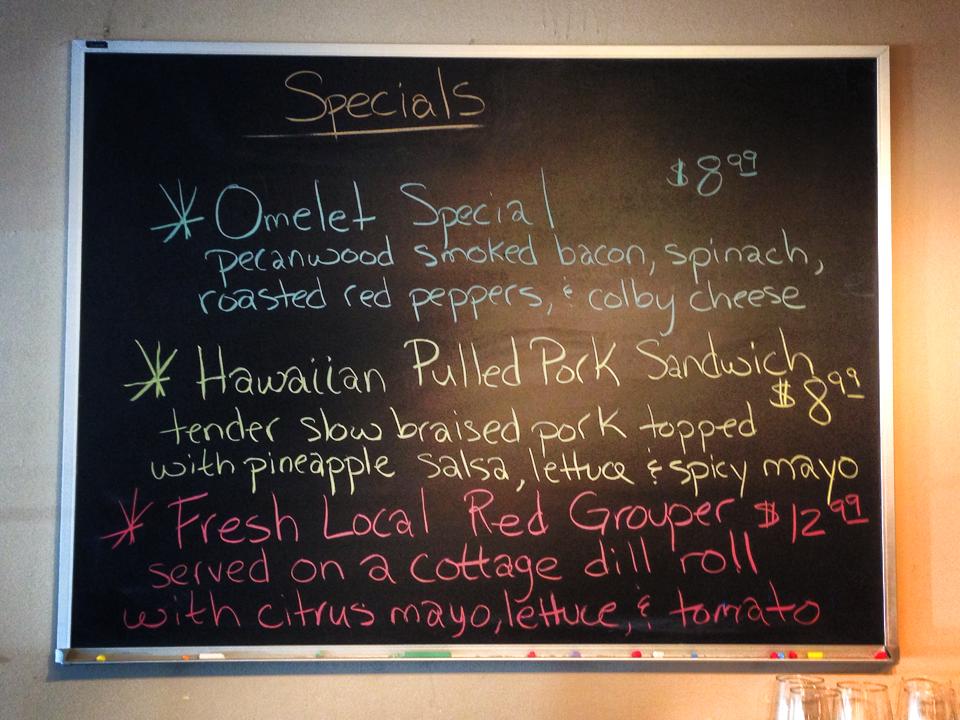 Specials
* Omelet Special $8.99
pecanwood smoked bacon, spinach,
roasted red peppers, & colby cheese
* Hawaiian Pulled Pork Sandwich
$8.99
tender slow braised pork topped
with pineapple salsa, lettuce & spicy mayo
* Fresh Local Red Grouper $12.99
served on a cottage dill roll
with citrus mayo, lettuce, & tomato